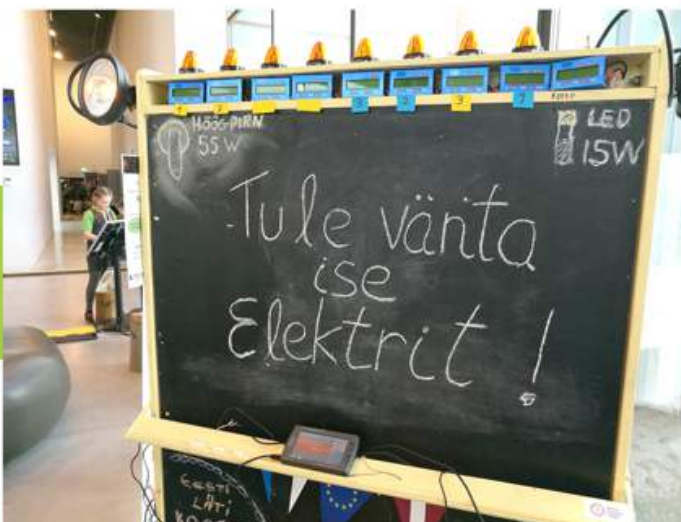 HÕÕG-PIRN
55 W
LED
15W
Tule vänta
ise
Elektrit !
EESTI
LÄTI